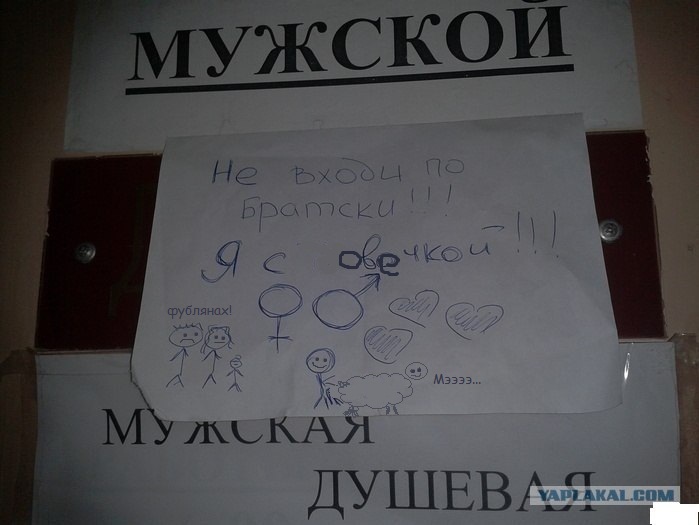 МУЖСКОЙ
Не входи по
братски!!!
Я с овечкой!!!
фублянах!
Мэээз...
МУЖСКАЯ
ДУШЕВАЯ
YAPLAKAL.COM